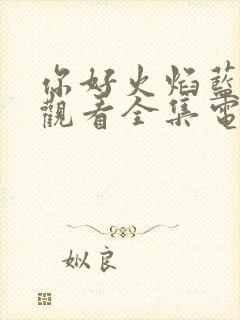 你好火焰藍
觀看全集電
姒良